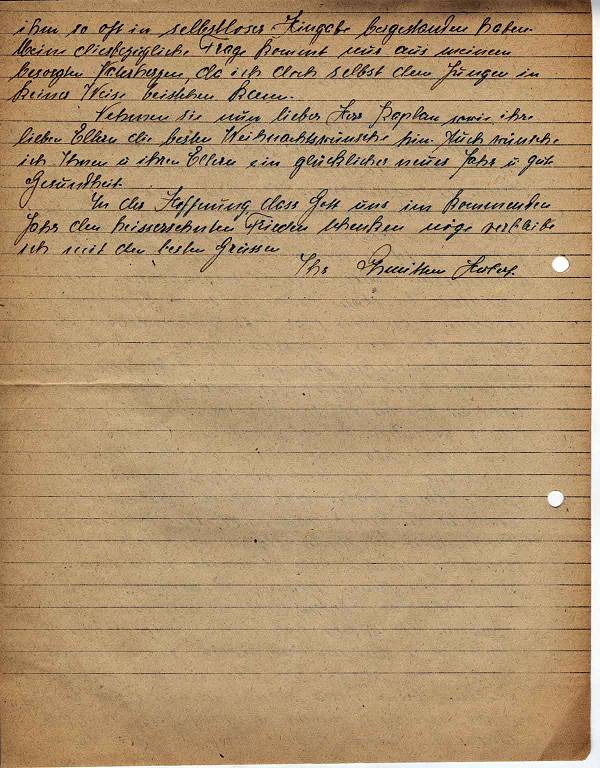 ihm so oft in selbstloser Hingabe beigestanden haben.
Meine diesbezügliche Frage kommt nur aus meinem
besorgten Vaterherzen, da ich doch selbst dem Jungen in
keiner Weise beistehen kann.
Nehmen sie nun lieber Herr Kaplan sowie ihre
lieben Eltern die besten Weihnachtswünsche hin. Auch wünsche
ich Ihnen u ihren Eltern ein glückliches neues Jahr u gute
Gesundheit.
In der Hoffnung, dass Gott uns im kommenden
Jahr den heissersehnten Frieden schenken möge verbleibe
ich mit den besten Grüssen
Ihr